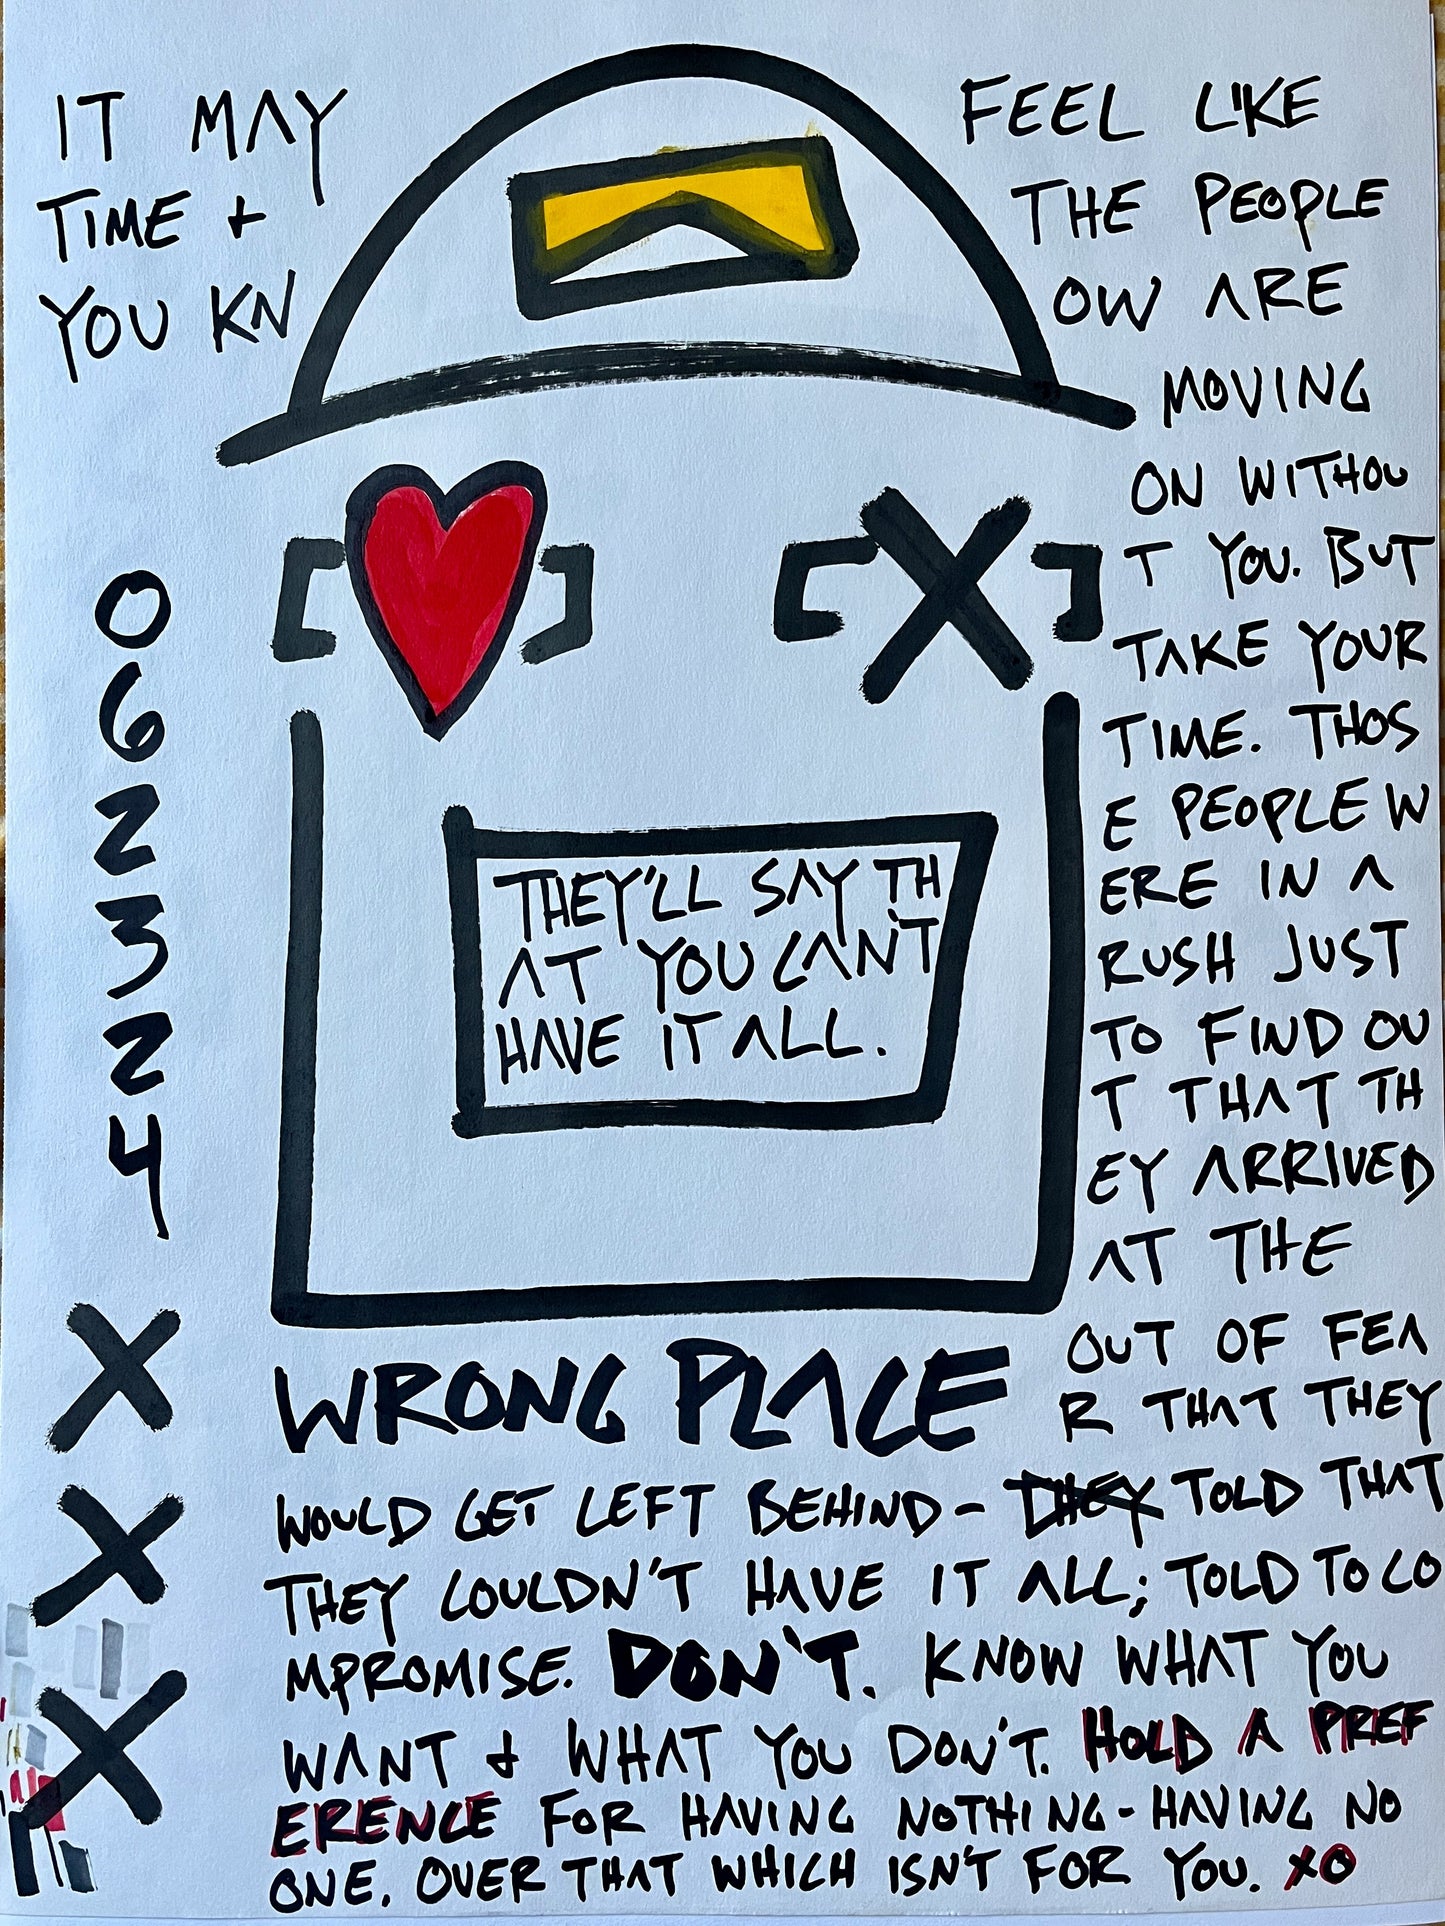 IT MAY FEEL LIKE
TIME + THE PEOPLE
YOU KNOW ARE
MOVING
ON WITHOU
T YOU. BUT
TAKE YOUR
TIME. THOS
E PEOPLE W
ERE IN A
RUSH JUST
TO FIND OU
T THAT TH
EY ARRIVED
AT THE
WRONG PLACE
OUT OF FEA
R THAT THEY
WOULD GET LEFT BEHIND - THEY TOLD THAT
THEY COULDN'T HAVE IT ALL; TOLD TO CO
MPROMISE. DON'T. KNOW WHAT YOU
WANT + WHAT YOU DON'T. HOLD A PREF
ERENCE FOR HAVING NOTHING - HAVING NO
ONE. OVER THAT WHICH ISN'T FOR YOU. XO
THEY'LL SAY TH
AT YOU CAN'T
HAVE IT ALL.
0
6
2
3
2
4
X
X
X